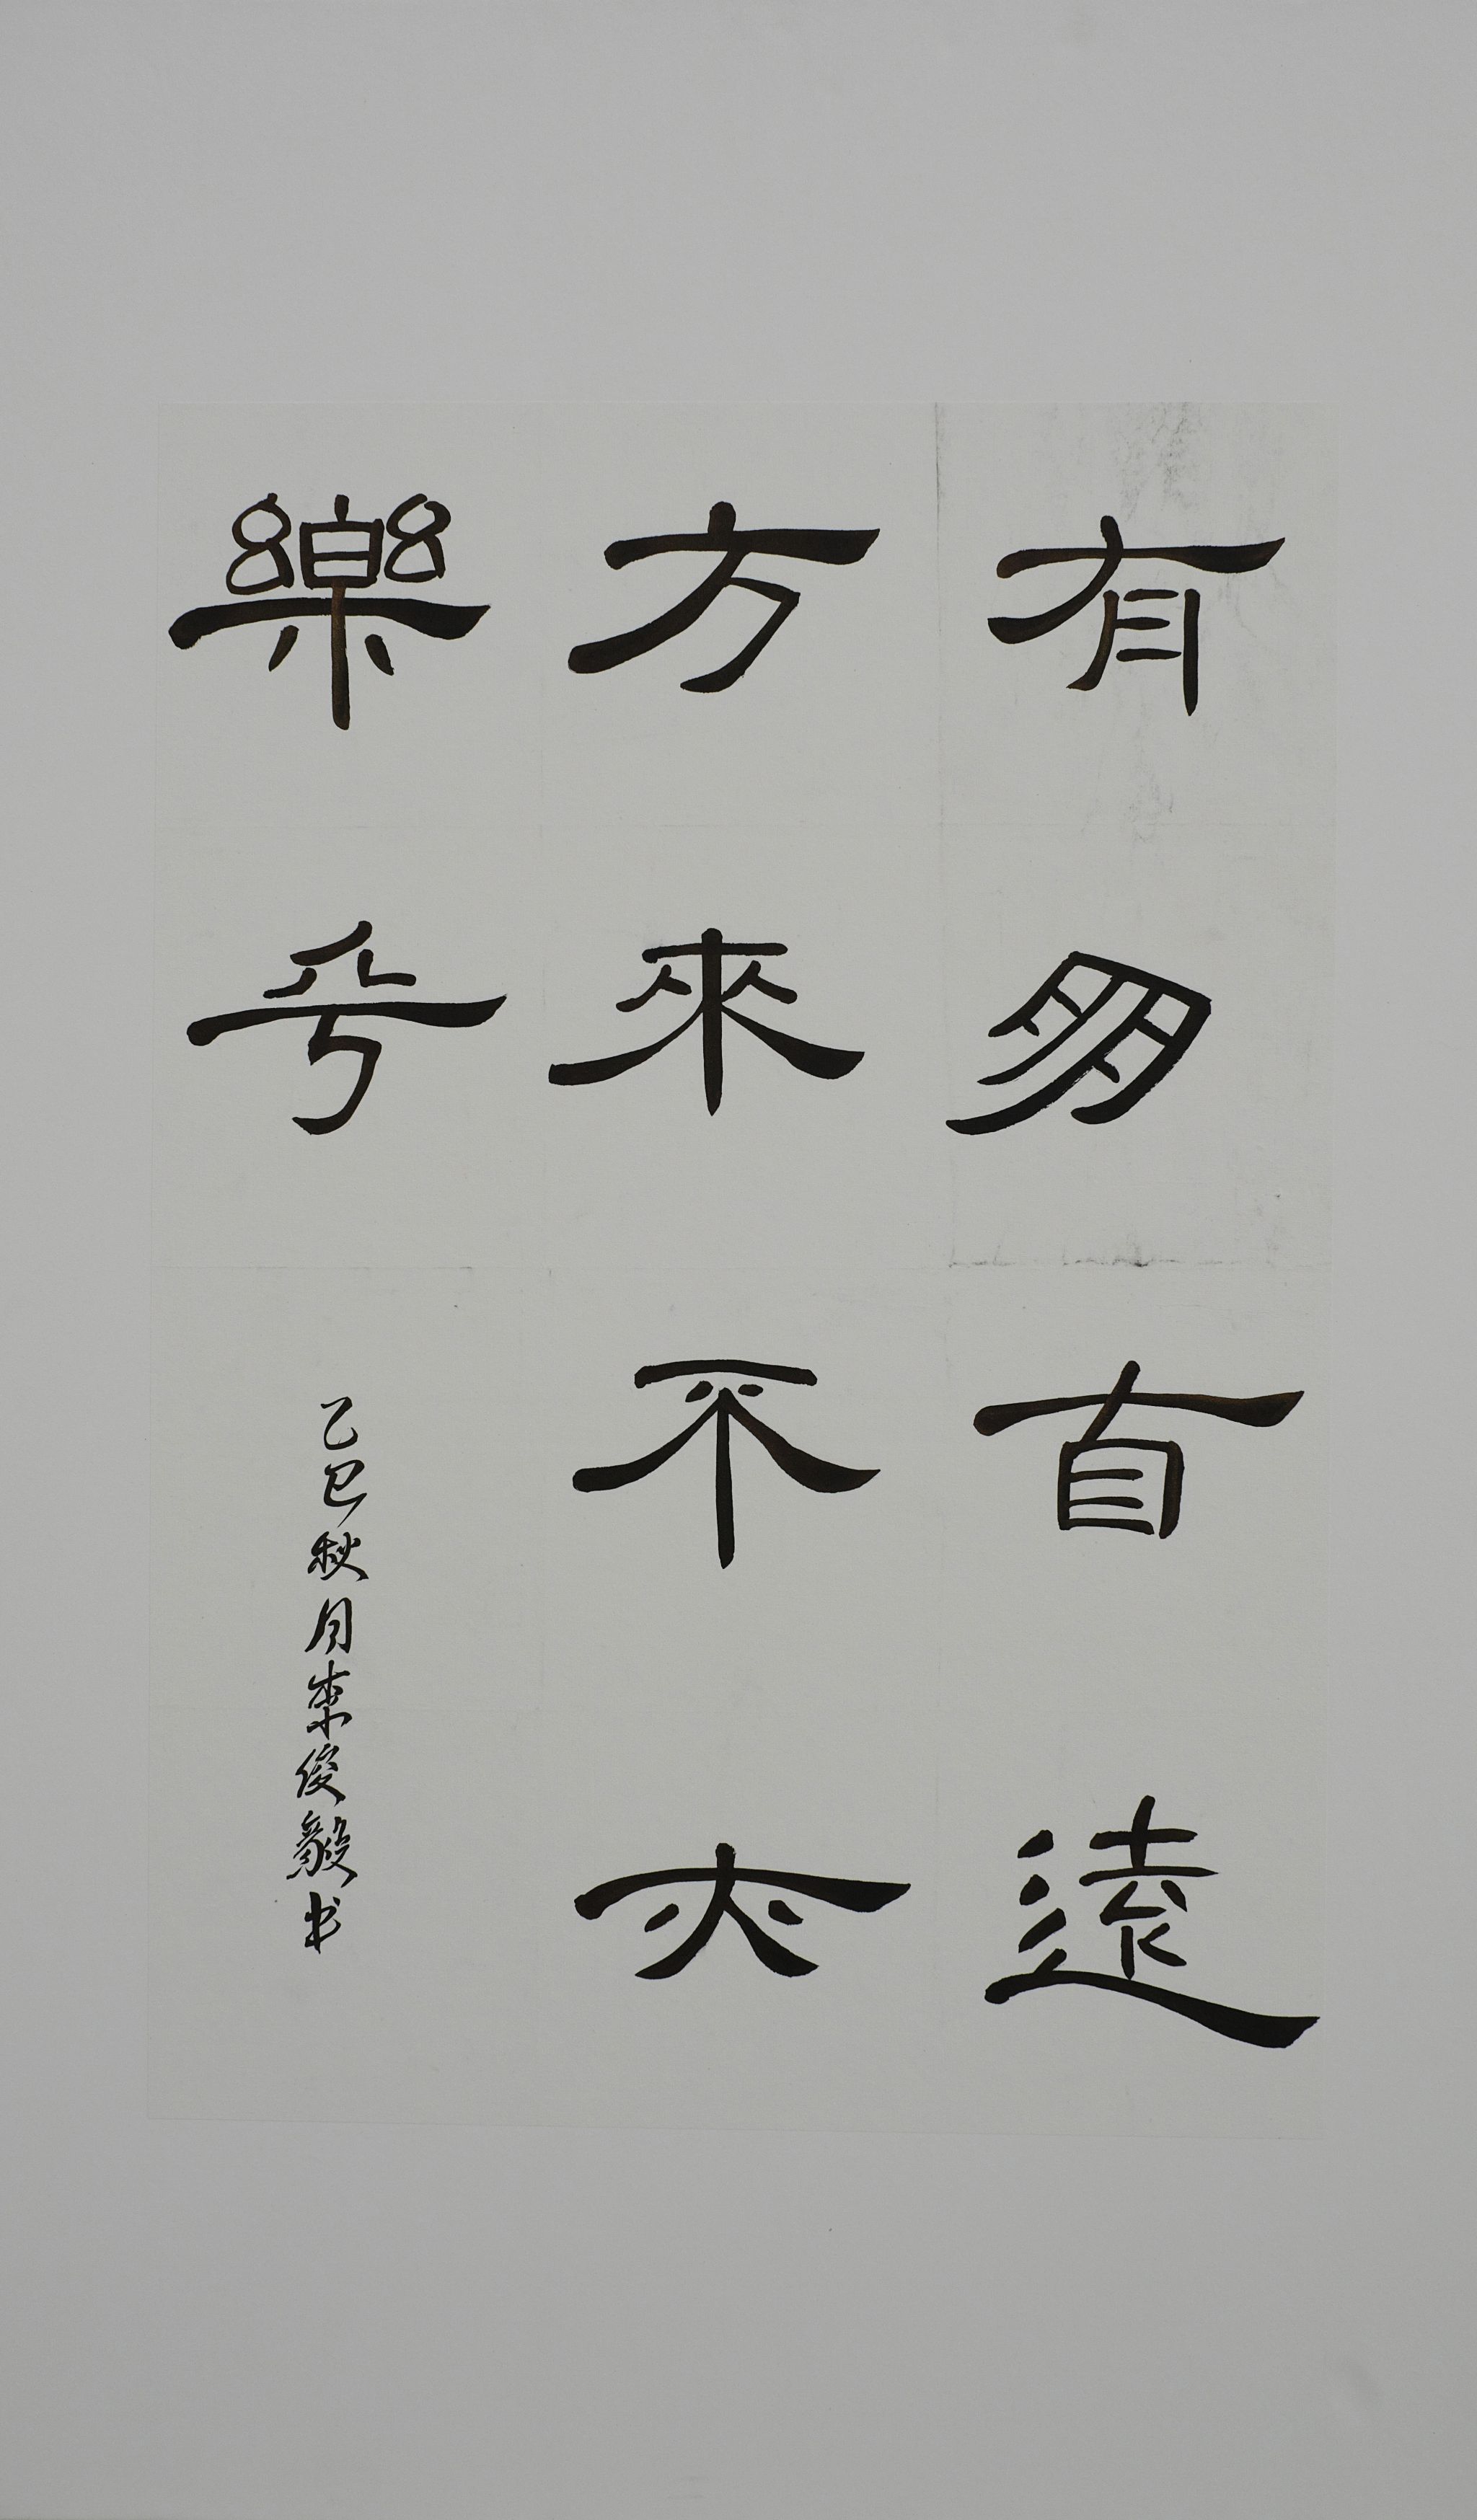 有朋自遠
方來不亦
樂乎
乙巳秋月俊毅书